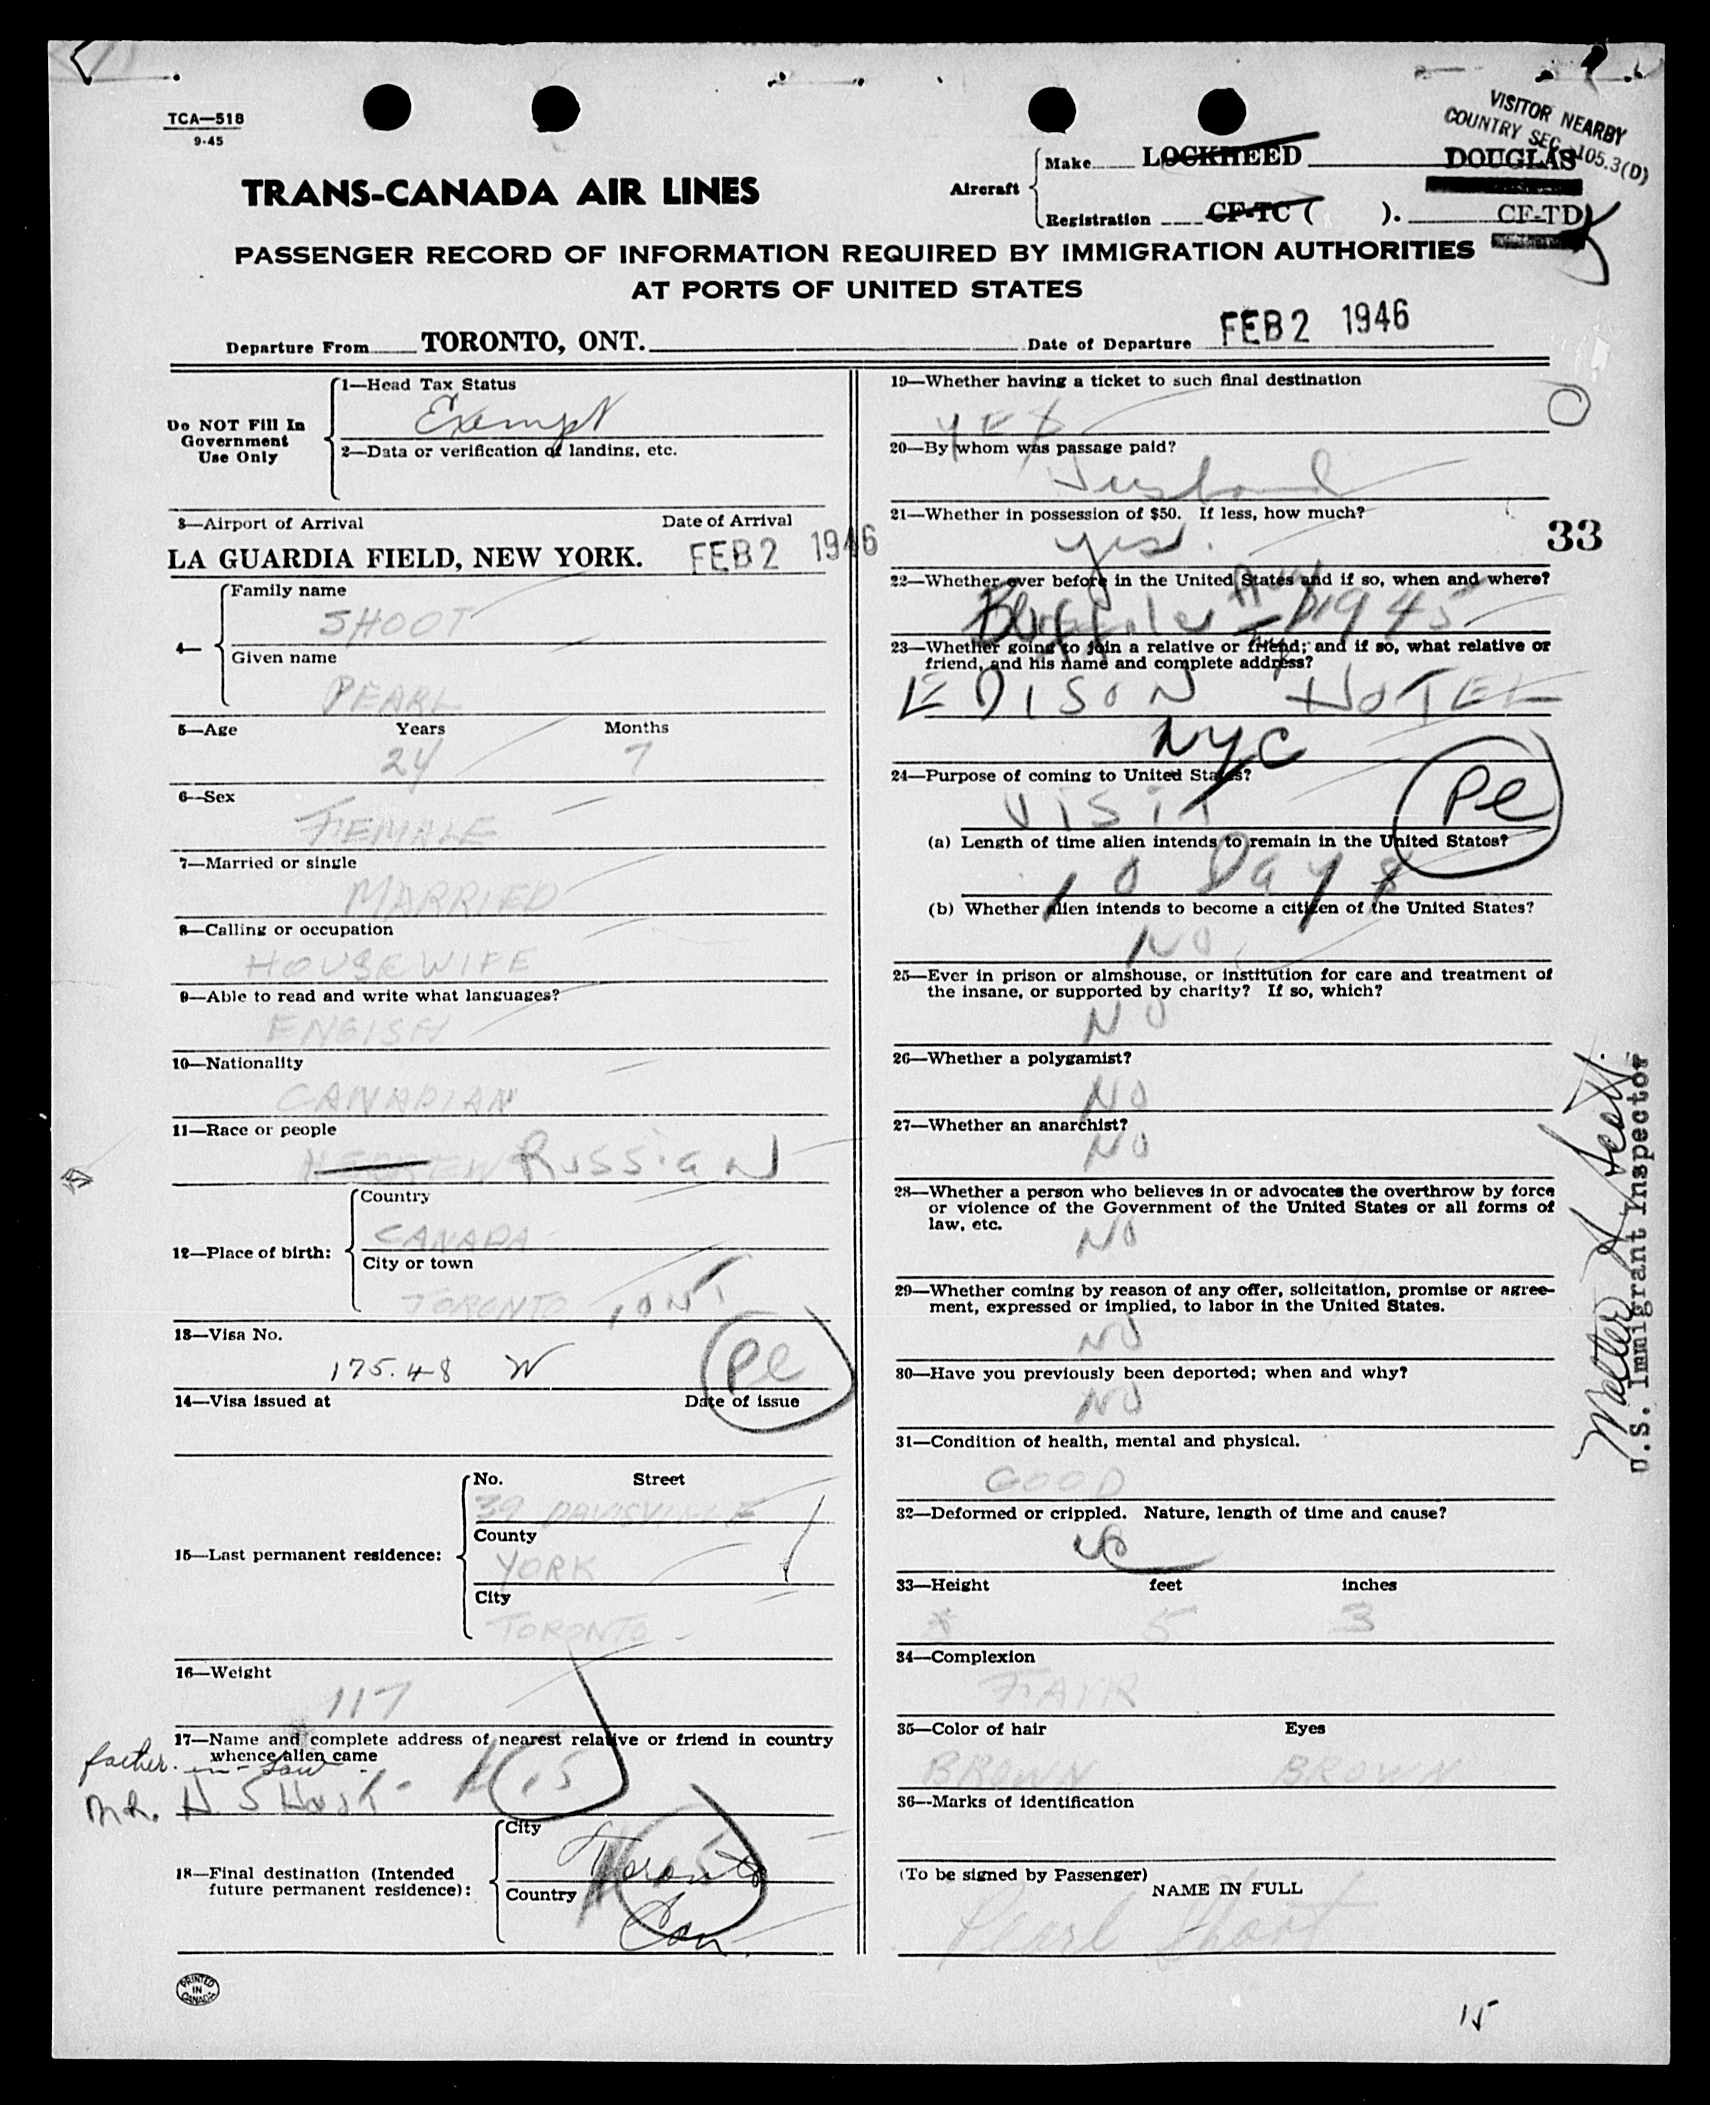 TCA—518
9-45
VISITOR NEARBY
COUNTRY SEC. 105.3(D)
TRANS-CANADA AIR LINES
Aircraft
Make LOCKHEED DOUGLAS
Registration CF-TC ( ). CF-TD
PASSENGER RECORD OF INFORMATION REQUIRED BY IMMIGRATION AUTHORITIES
AT PORTS OF UNITED STATES
Departure From TORONTO, ONT.
Date of Departure FEB 2 1946
Do NOT Fill In
Government
Use Only
1—Head Tax Status
Exempt
2—Data or verification of landing, etc.
3—Airport of Arrival Date of Arrival
LA GUARDIA FIELD, NEW YORK. FEB 2 1946
4—
Family name
SHOOT
Given name
PEARL
5—Age Years Months
24 7
6—Sex
FEMALE
7—Married or single
MARRIED
8—Calling or occupation
HOUSEWIFE
9—Able to read and write what languages?
ENGISH
10—Nationality
CANADIAN
11—Race or people
HEBREW RUSSIAN
12—Place of birth:
Country
CANADA
City or town
TORONTO, ONT
13—Visa No.
175.48 W
Pe
14—Visa issued at Date of issue
15—Last permanent residence:
No. Street
39 DAVISVILLE
County
YORK
City
TORONTO
16—Weight
117
17—Name and complete address of nearest relative or friend in country
whence alien came
father-in-Law
Mr. H Shoot 15
18—Final destination (Intended
future permanent residence):
City
Toronto
Country
Can.
PRINTED
IN
CANADA
19—Whether having a ticket to such final destination
YES
20—By whom was passage paid?
Husband
21—Whether in possession of $50. If less, how much?
yes.
33
22—Whether ever before in the United States and if so, when and where?
Buffalo NY Aug 1945
23—Whether going to join a relative or friend; and if so, what relative or
friend, and his name and complete address?
EDISON HOTEL
NYC
24—Purpose of coming to United States?
VISIT
Pe
(a) Length of time alien intends to remain in the United States?
10 Days
(b) Whether alien intends to become a citizen of the United States?
NO
25—Ever in prison or almshouse, or institution for care and treatment of
the insane, or supported by charity? If so, which?
NO
26—Whether a polygamist?
NO
27—Whether an anarchist?
NO
28—Whether a person who believes in or advocates the overthrow by force
or violence of the Government of the United States or all forms of
law, etc.
NO
29—Whether coming by reason of any offer, solicitation, promise or agree-
ment, expressed or implied, to labor in the United States.
NO
30—Have you previously been deported; when and why?
NO
31—Condition of health, mental and physical.
GOOD
32—Deformed or crippled. Nature, length of time and cause?
no
33—Height feet inches
5 3
34—Complexion
FAIR
35—Color of hair Eyes
BROWN BROWN
36—Marks of identification
(To be signed by Passenger)
NAME IN FULL
Pearl Shoot
Walter H
U.S. Immigrant Inspector
15